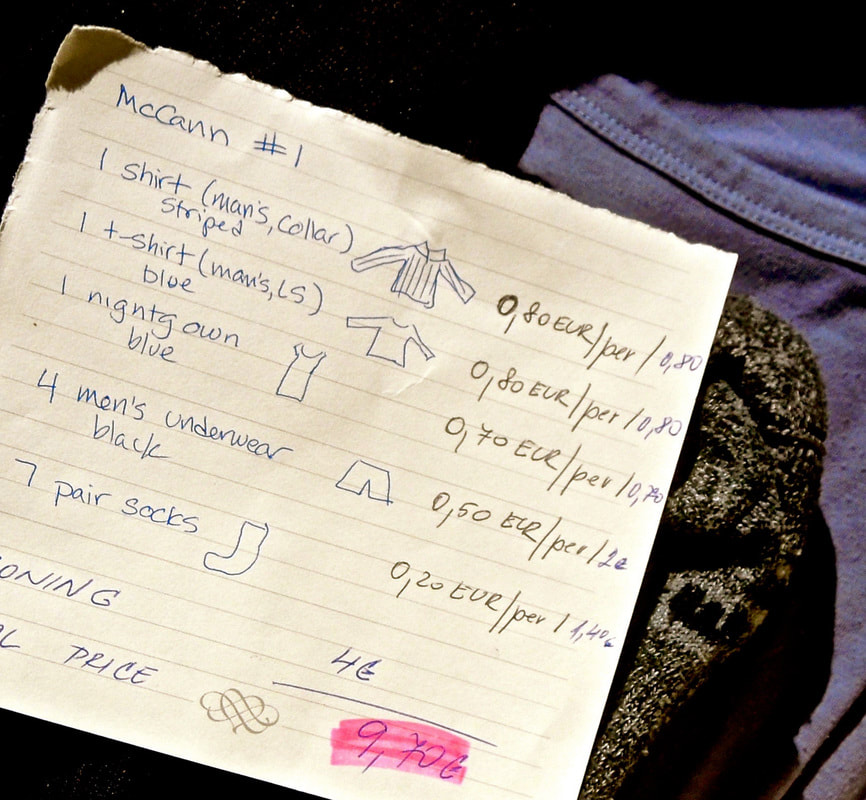 McCann #1
1 shirt (man's, collar) 0,80 EUR/per/0,80
striped
1 t-shirt (man's, LS) 0,80 EUR/per/0,80
blue
1 nightgown 0,70 EUR/per/0,70
blue
4 men's underwear 0,50 EUR/per/2€
black
7 pair socks 0,20 EUR/per/1,40€
ONING 4€
PRICE 9,70€